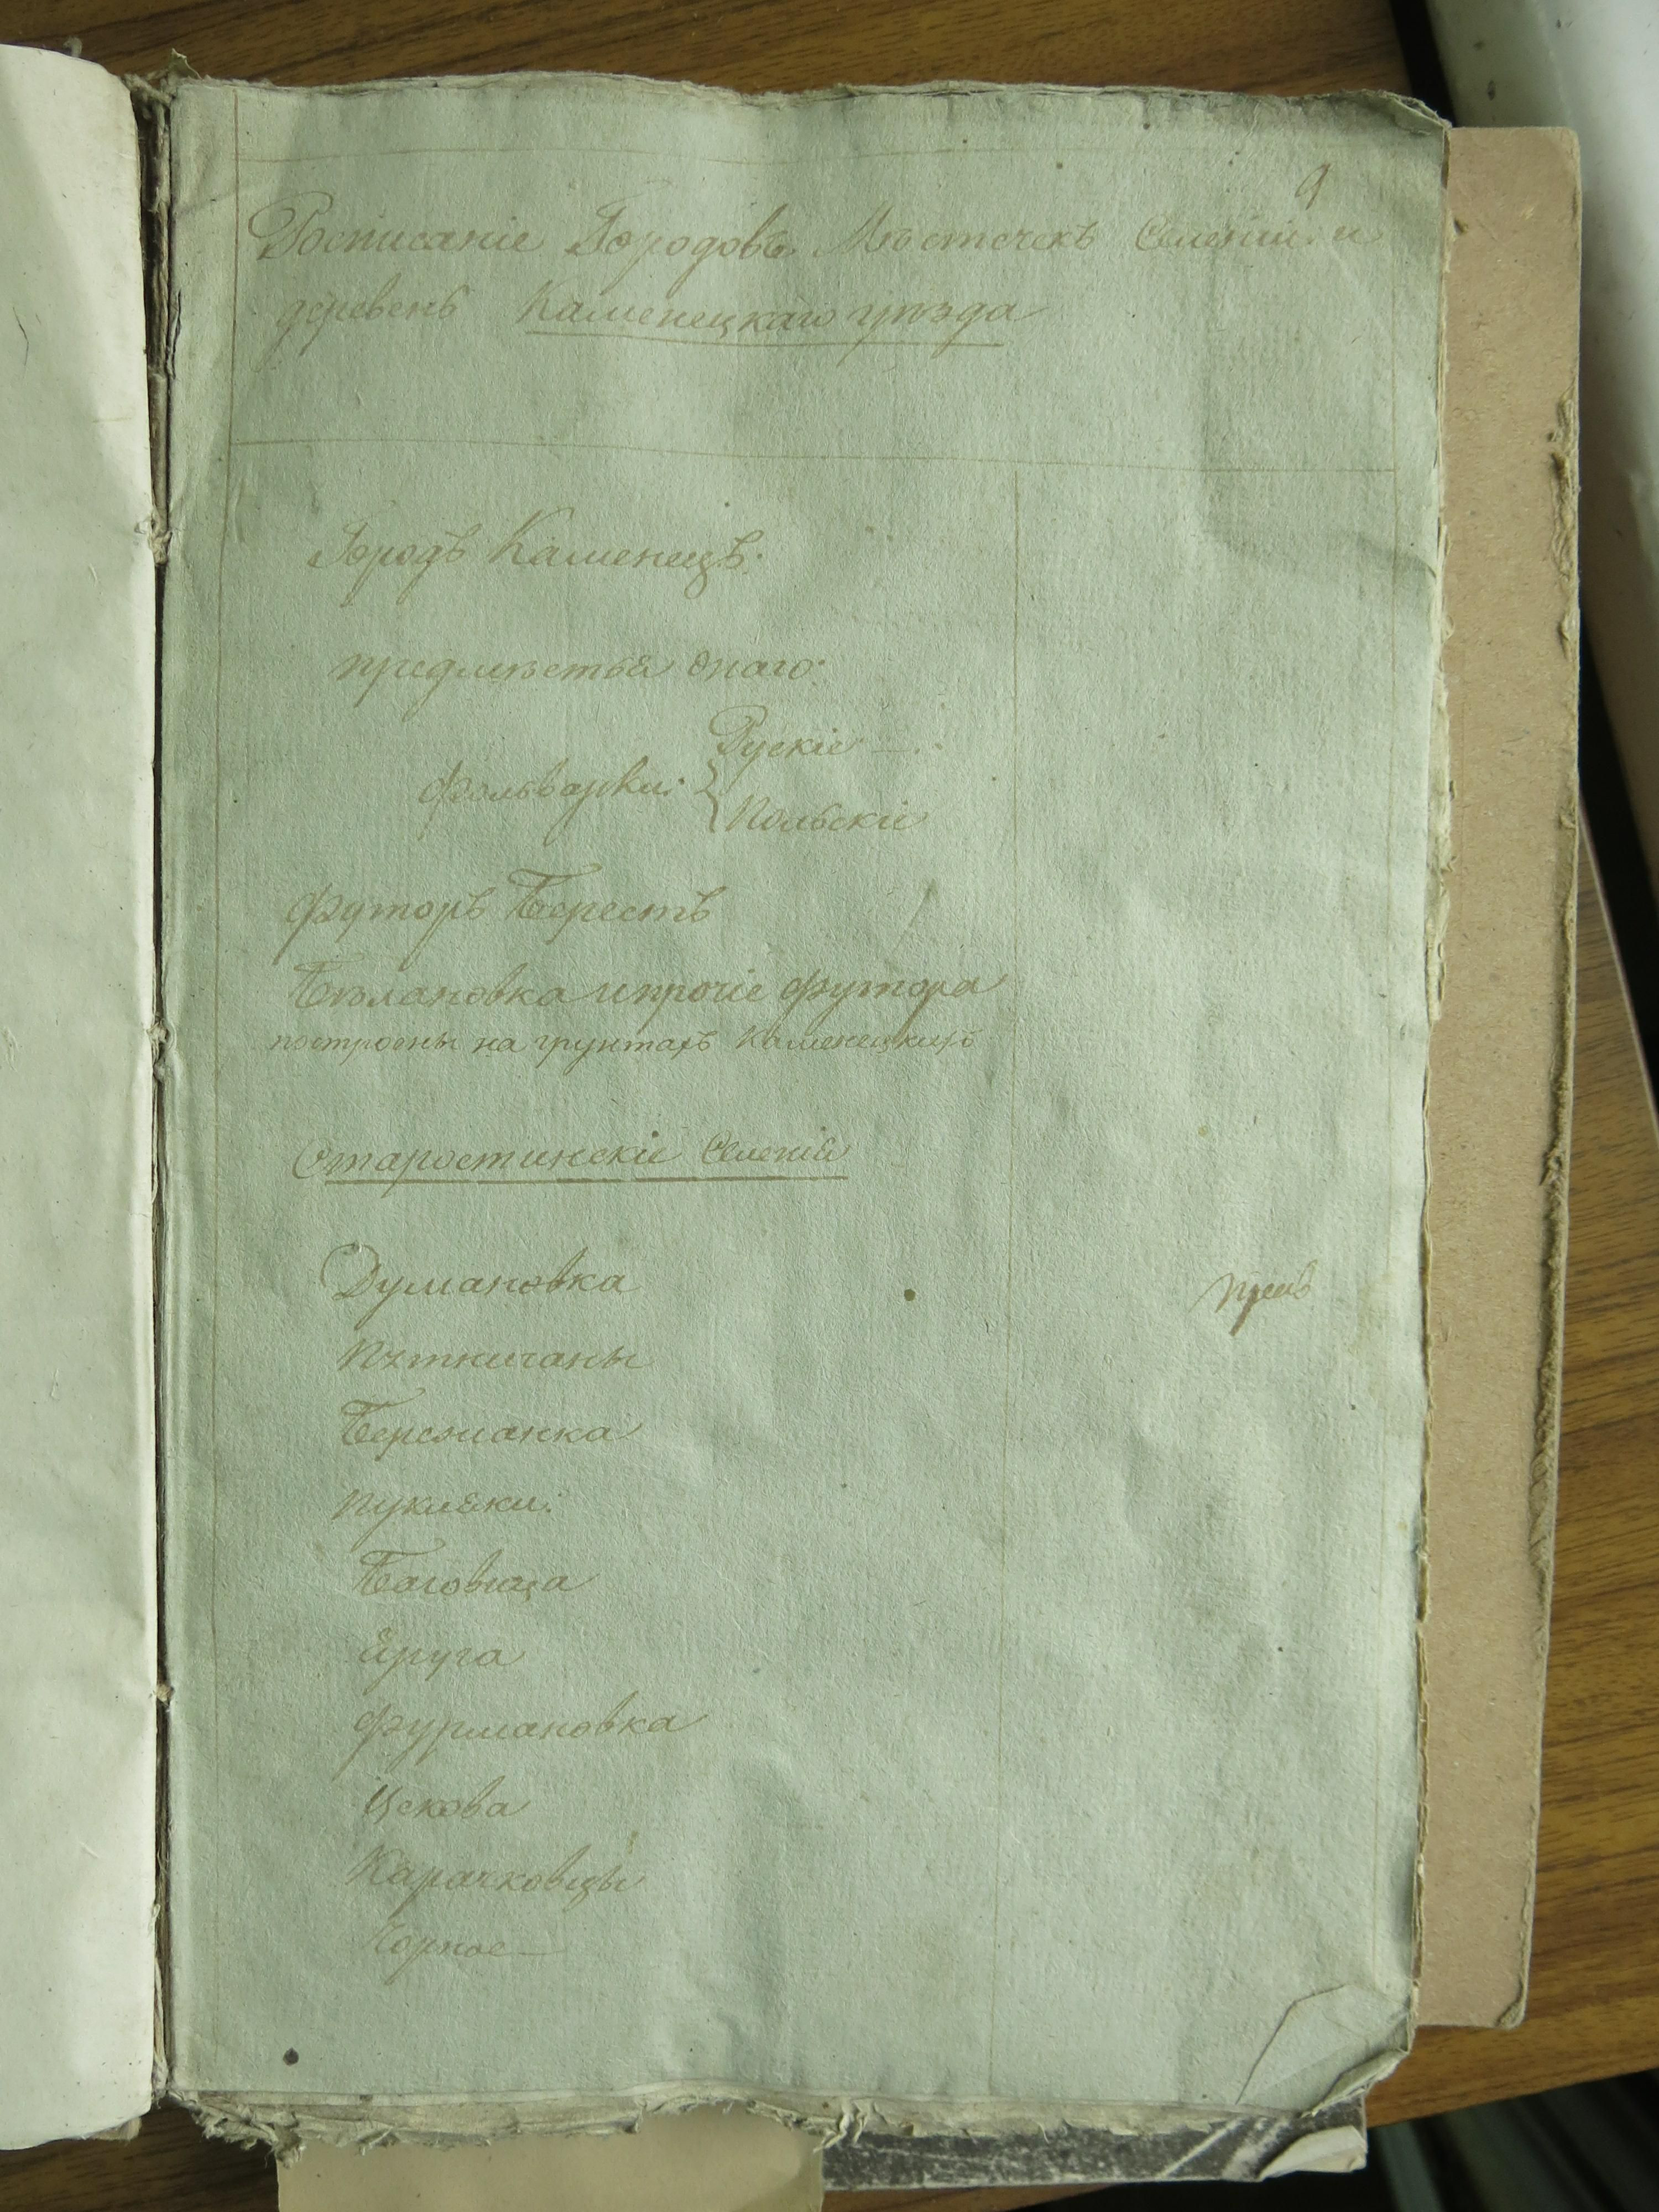 9
Росписаніе Городовъ Мѣстечекъ Селеній и
деревень Каменецкаго уѣзда
Городъ Каменецъ.
предмѣстья онаго:
Рускіе
фольварки:
Польскіе
Футоръ Берестъ
Бѣлановка и прочіе футора
построены на грунтахъ Каменецкихъ
Старостинскіе Селенія
Думановка
Бережанка
Пукляки:
Баговица
Яруга
Фурмановка
Цекова
Карачковцы